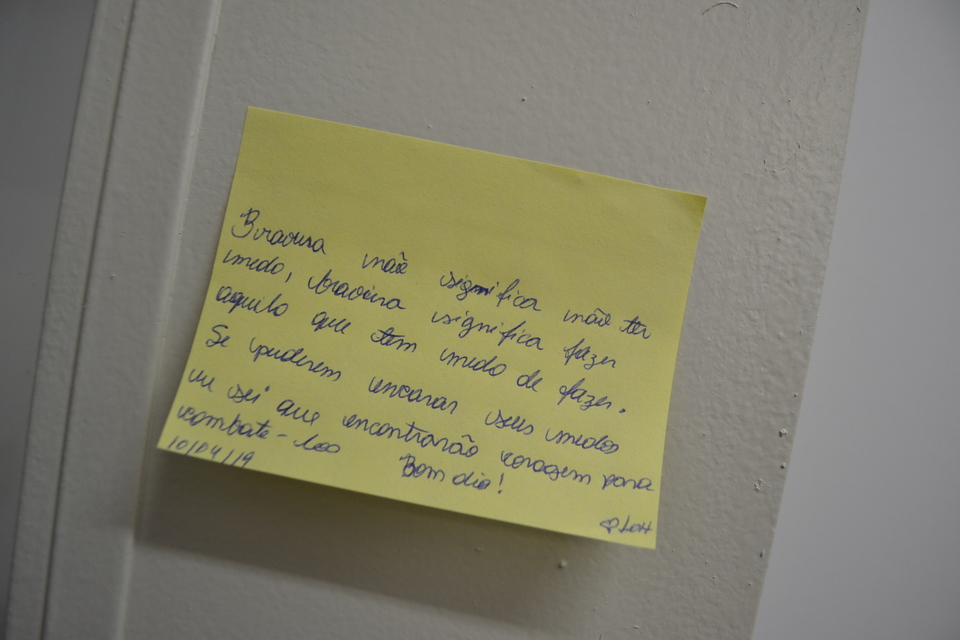 Bravura não significa não ter
medo, bravura significa fazer
aquilo que tem medo de fazer.
Se puderem encarar seus medos
eu sei que encontrarão coragem para
combate-los Bom dia!
10/04/19